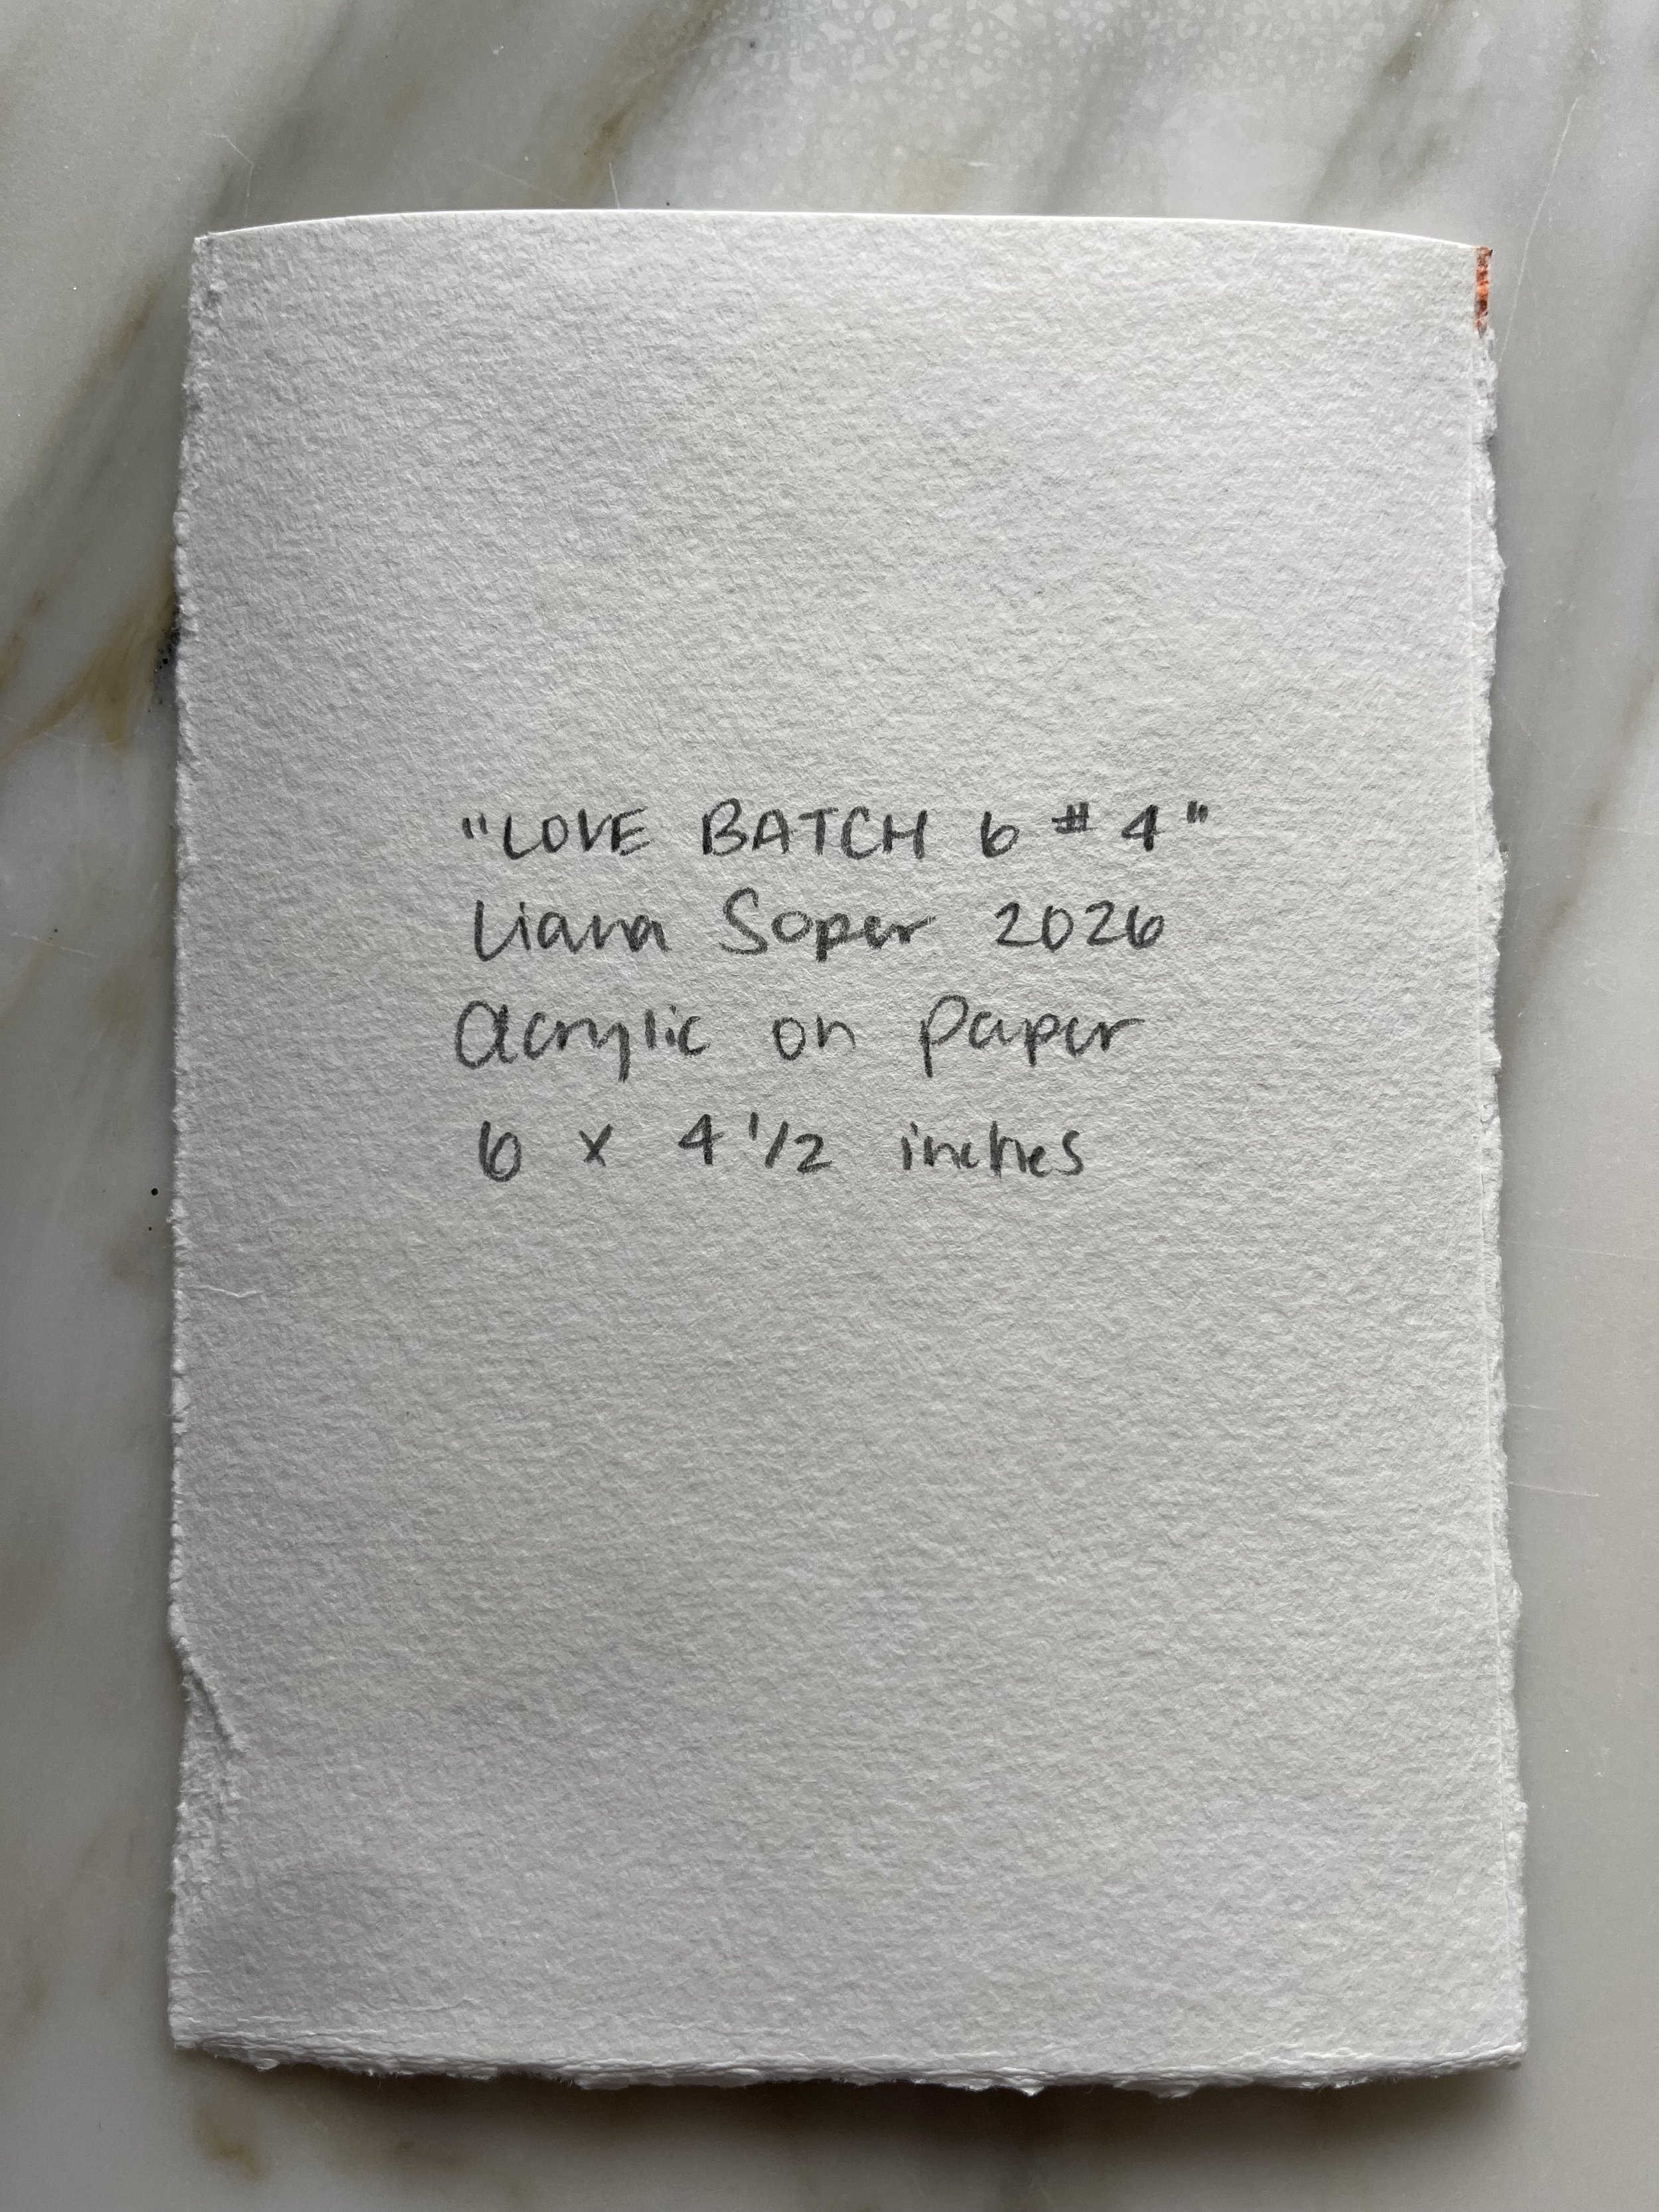 "LOVE BATCH 6 #4"
Liana Soper 2026
Acrylic on paper
6 x 4 1/2 inches